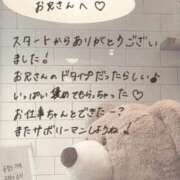 お兄さんへ♡
スタートからありがとうござい
ました!
お兄さんのドタイプだったらしい♪
いっぱい褒めてもらっちゃった♡
お仕事ちゃんとできたー?
またサボリーマンしようね!